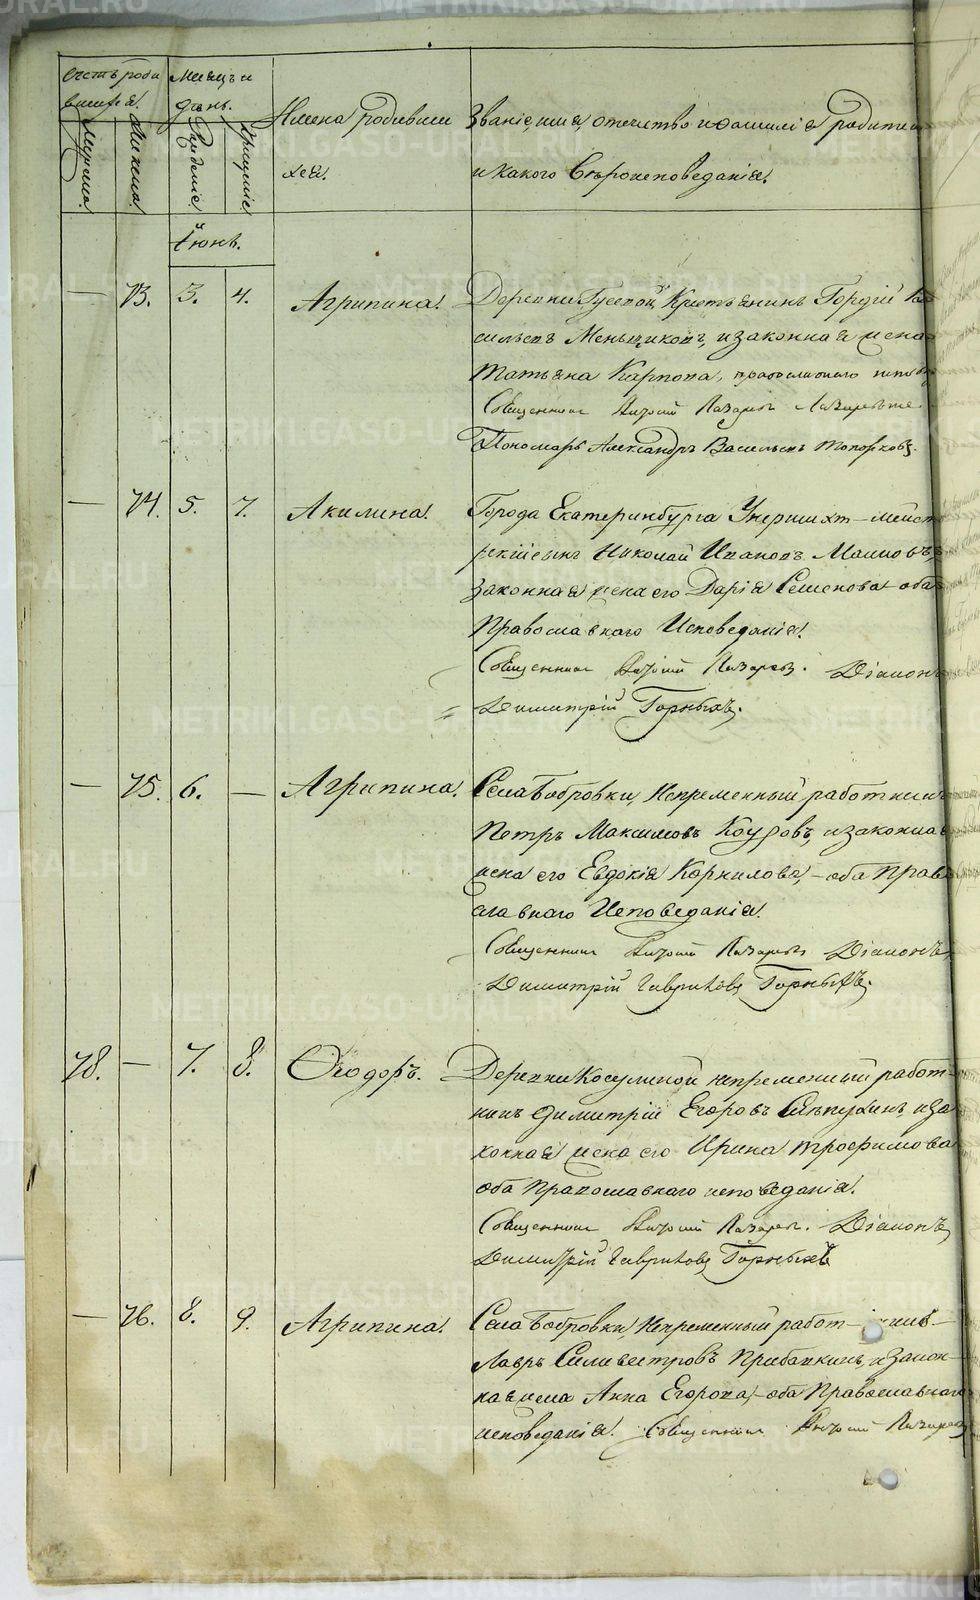 Счетъ роди
вшихся.
Мѣсяцъ и
день.
Имена родивши
хся.
Званіе, имя, отечество и фамилія родителей
и какого вѣроисповѣданія.
Мужеска.
Женска.
Рожденіе
Крещеніе
Іюнь.
— 73. 3. 4. Агрипина.
Деревни Гусевой, Крестьянинъ Гордій Ва
сильевъ Меньщиковъ, и законная жена
Татьяна Карпова, православнаго
Священникъ Лазаревъ
Пономарь Александръ Васильевъ Топорковъ.
— 74. 5. 7. Акилина.
Города Екатеринбурга Унтершихт-мейст
рскій сынъ Николай Ивановъ
законная жена его Дарія Семенова оба
Православнаго Исповеданія.
Священникъ Лазаревъ. Діаконъ
Димитрій Горныхъ.
— 75. 6. — Агрипина.
Села Бобровки, Непременный работникъ
Петръ Максимовъ и законная
жена его Евдокія Корнилова, – оба Право
славнаго Исповеданія.
Священникъ Лазаревъ Діаконъ
Димитрій Гавриловъ Горныхъ.
78. — 7. 8. Ѳеодоръ.
Деревни Косулиной непременный работ-
никъ Димитрій Егоровъ и за
конная жена его Ирина Трофимова
оба Православнаго исповеданія.
Священникъ Лазаревъ. Діаконъ
Димитрій Гавриловъ Горныхъ
— 76. 8. 9. Агрипина.
Села Бобровки, Непременный работ-никъ
Лавръ Селивестровъ и закон-
ная жена Анна Егорова, – оба Православнаго
исповеданія. Священникъ Лазаревъ
METRIKI.GASO-URAL.RU